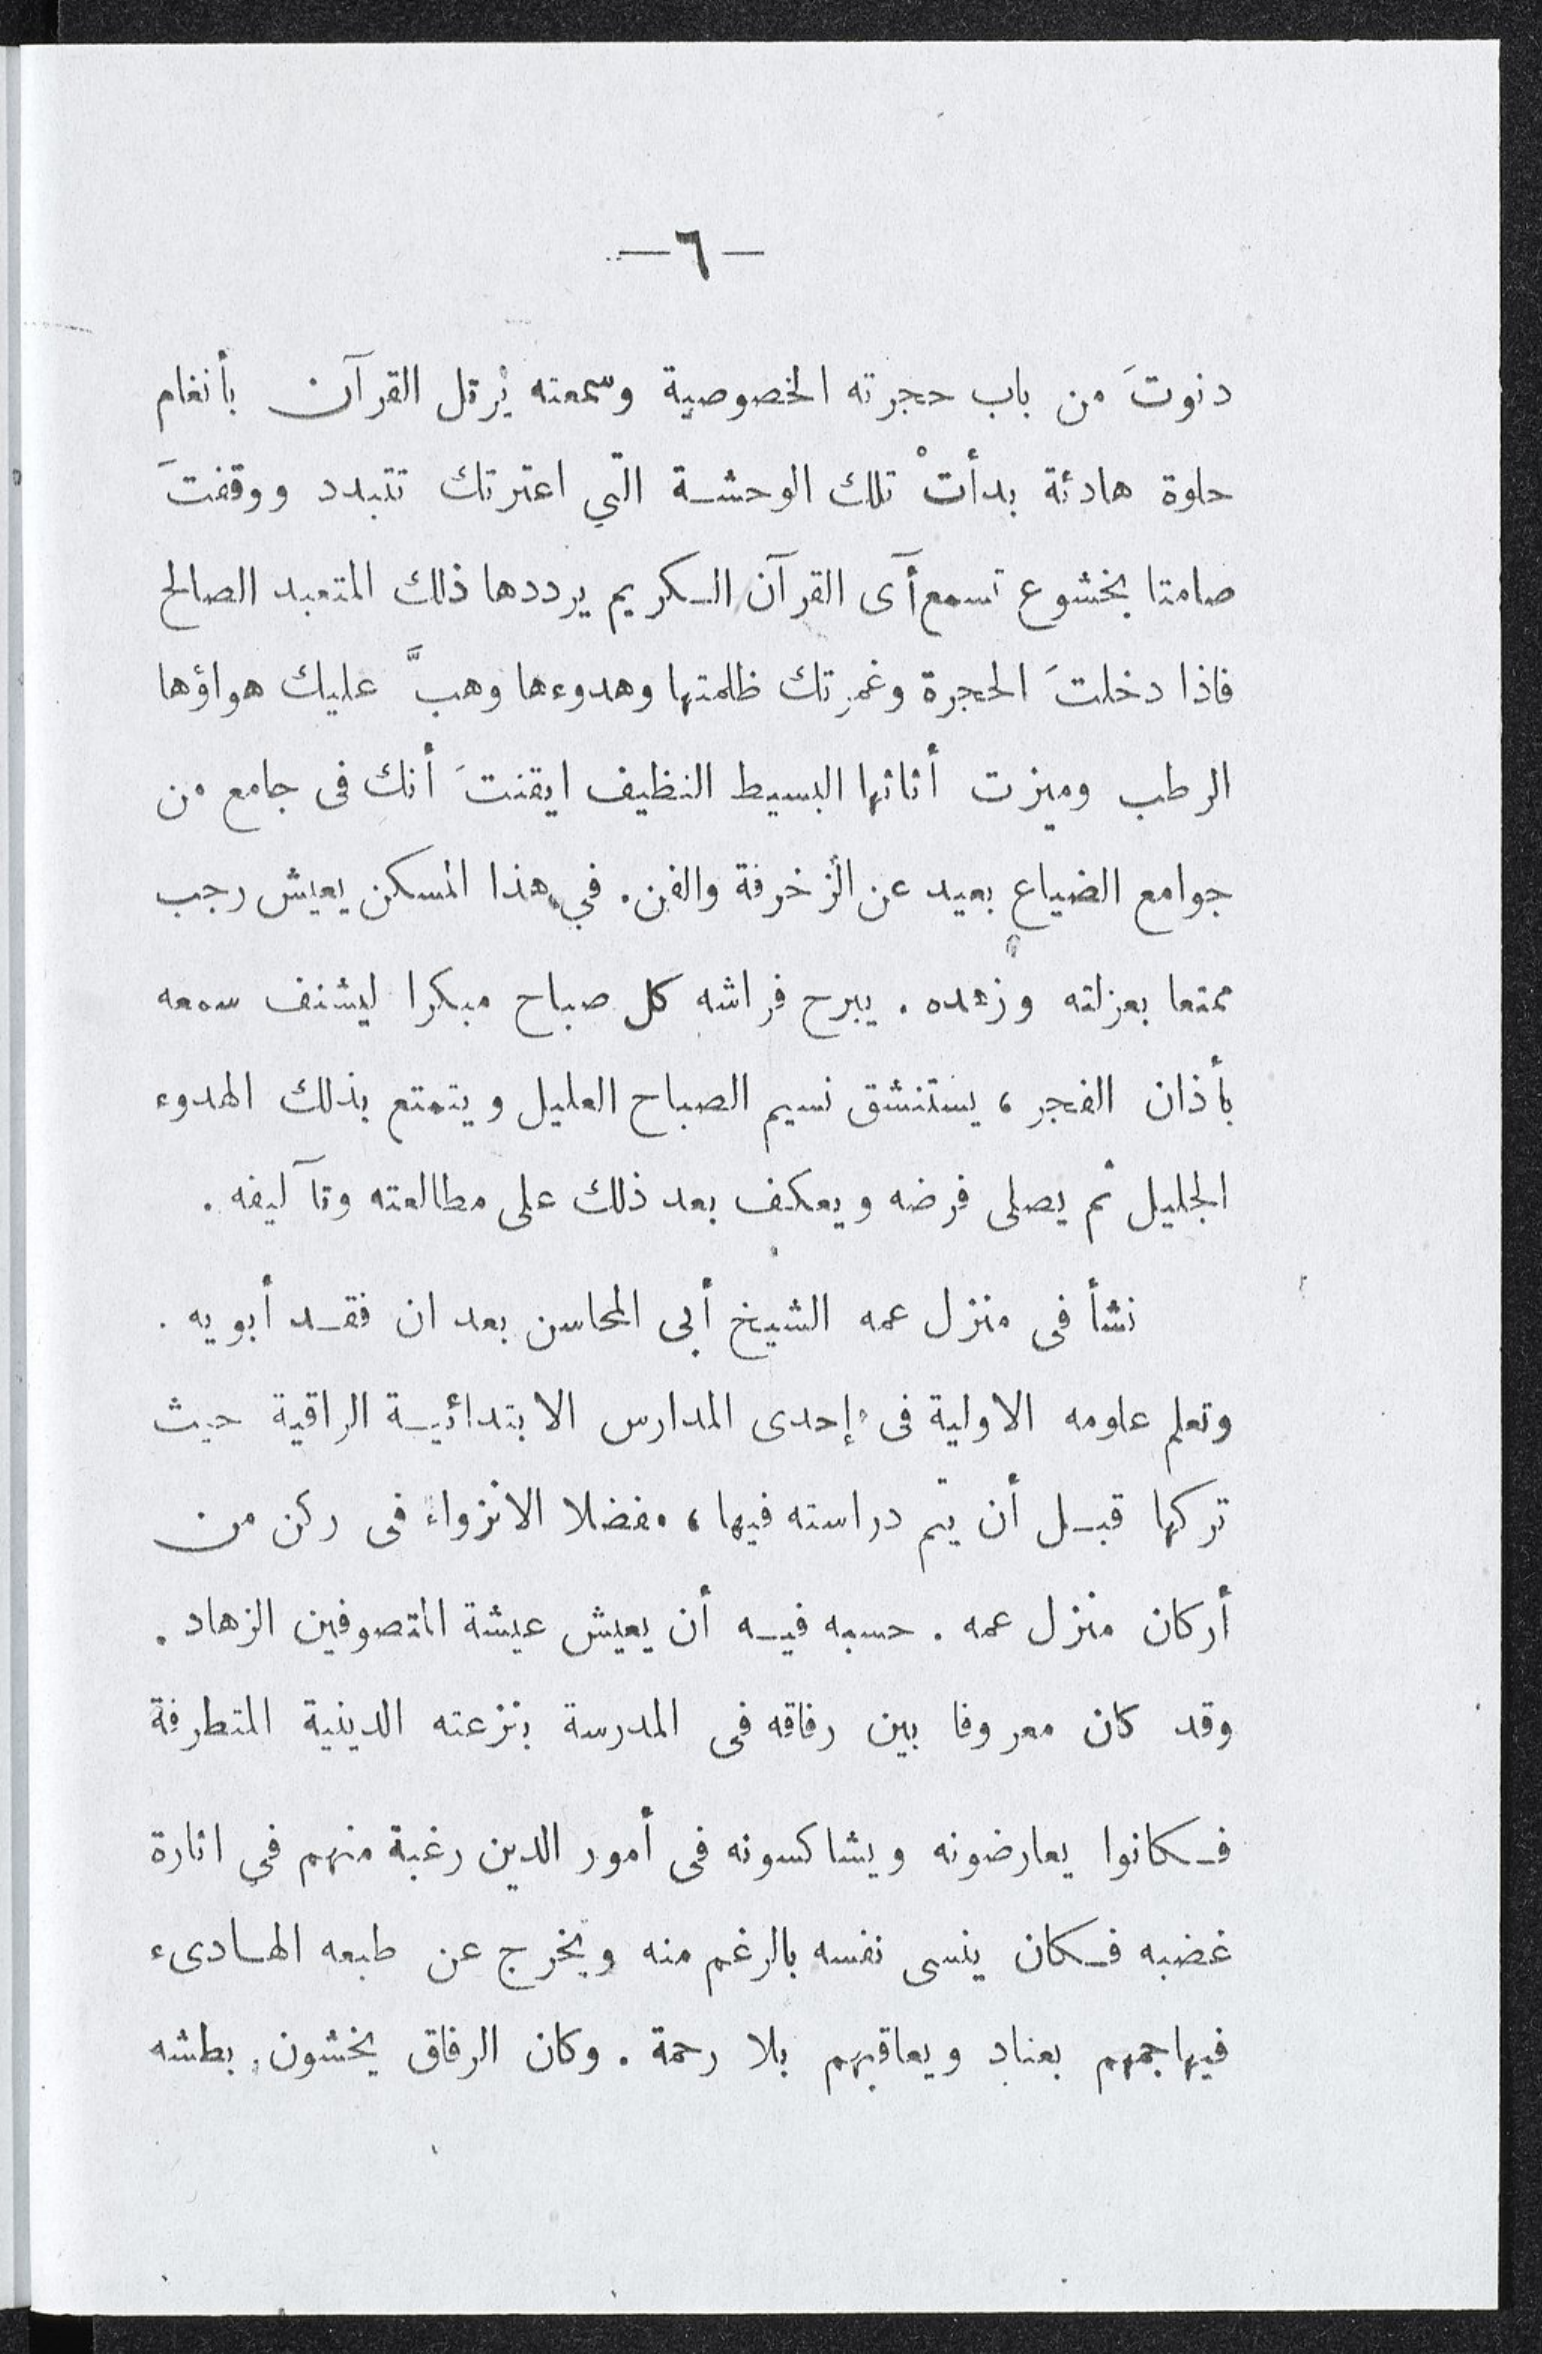 — ٦ —
دنوتَ من باب حجرته الخصوصية وسمعته يُرتل القرآن بأنغام
حلوة هادئة بدأتْ تلك الوحشة التي اعترتك تتبدد ووقفتَ
صامتا بخشوع تسمع آى القرآن الكريم يرددها ذلك المتعبد الصالح
فاذا دخلتَ الحجرة وغمرتك ظلمتها وهدوءها وهبَّ عليك هواؤها
الرطب وميزت أثاثها البسيط النظيف ايقنتَ أنك فى جامع من
جوامع الضياع بعيد عن الزخرفة والفن. في هذا المسكن يعيش رجب
ممتعا بعزلته وزهده. يبرح فراشه كل صباح مبكرا ليشنف سمعه
بأذان الفجر، يستنشق نسيم الصباح العليل ويتمتع بذلك الهدوء
الجليل ثم يصلى فرضه ويعكف بعد ذلك على مطالعته وتآليفه.
نشأ فى منزل عمه الشيخ أبى المحاسن بعد ان فقد أبويه.
وتعلم علومه الاولية فى إحدى المدارس الابتدائية الراقية حيث
تركها قبل أن يتم دراسته فيها، مفضلا الانزواء فى ركن من
أركان منزل عمه. حسبه فيه أن يعيش عيشة المتصوفين الزهاد.
وقد كان معروفا بين رفاقه فى المدرسة بنزعته الدينية المتطرفة
فكانوا يعارضونه ويشاكسونه فى أمور الدين رغبة منهم في اثارة
غضبه فكان ينسى نفسه بالرغم منه ويخرج عن طبعه الهادىء
فيهاجمهم بعناد ويعاقبهم بلا رحمة. وكان الرفاق يخشون بطشه